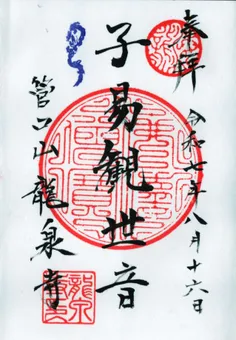 奉拝
令和七年八月十六日
子易観世音
管公山
龍泉寺